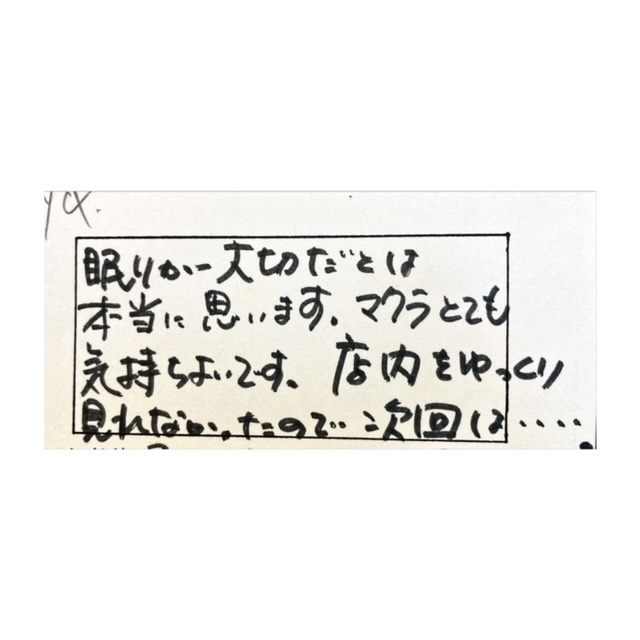 眠りが大切だとは
本当に思います。マクラとても
気持ちよいです。店内をゆっくり
見れなかったので次回は‥‥